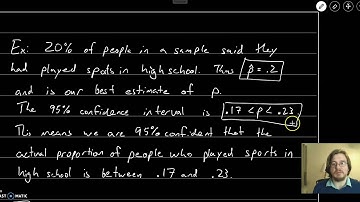 Ex: 20% of people in a sample said they
had played sports in high school. Thus p̂ = .2
and is our best estimate of p.
The 95% confidence interval is .17 < p < .23
This means we are 95% confident that the
actual proportion of people who played sports in
high school is between .17 and .23.